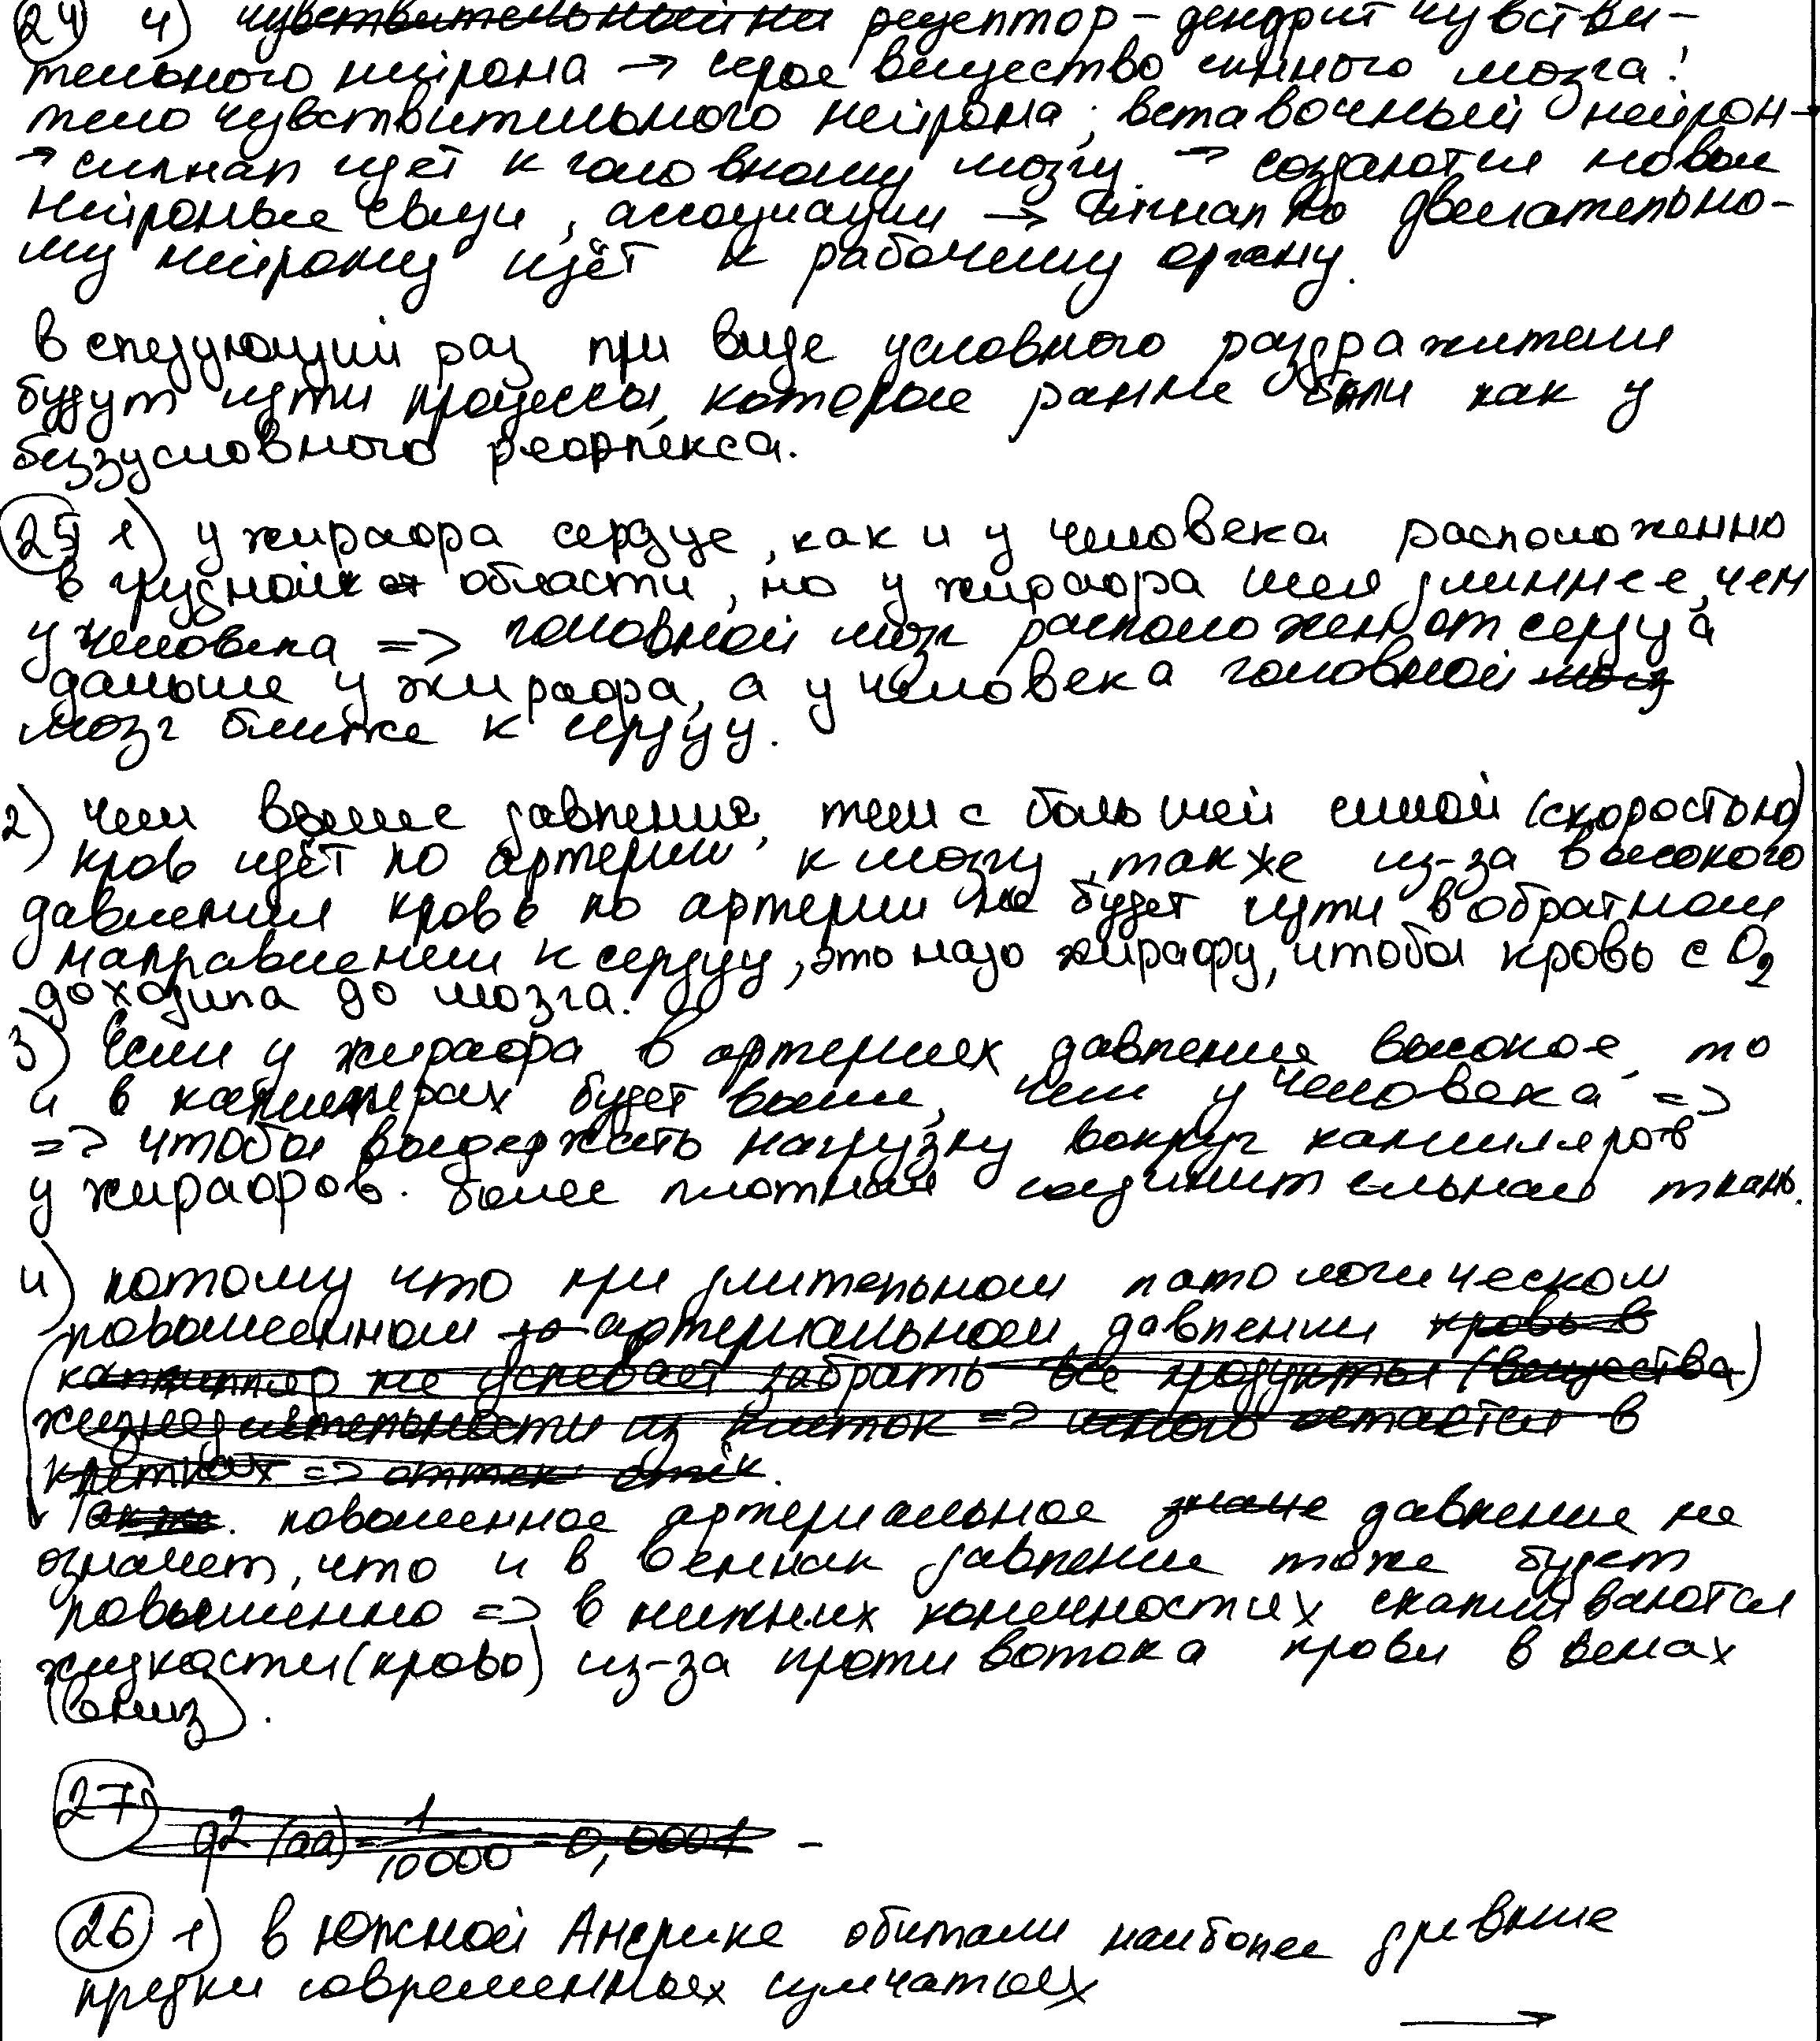 24 4) чувствительный не рецептор – дендрит чувстви-
тельного нейрона → серое вещество спинного мозга:
тело чувствительного нейрона; вставочный нейрон →
→ сигнал идёт к головному мозгу. → создаются новые
нейронные связи, ассоциации → сигнал по двигательно-
му нейрону идёт к рабочему органу.
в следующий раз при виде условного раздражителя
будут идти процессы, которые ранне были как у
беззусловного рефлекса.
25 1) у жирафа сердце, как и у человека расположенно
в грудной области, но у жирафа шея длиннее, чем
у человека => головной мозг расположен от сердца
дальше у жирафа, а у человека головной мозг
мозг ближе к сердцу.
2) чем выше давление, тем с большей силой (скоростью)
кровь идёт по артерии к мозгу, также из-за высокого
давления кровь по артерии не будет идти в обратном
направлении к сердцу, это надо жирафу, чтобы кровь с O2
доходила до мозга.
3) Если у жирафа в артериях давление высокое, то
и в капиллярах будет выше, чем у человека =>
=> чтобы выдержать нагрузку вокруг капилляров
у жирафов более плотная соединительная ткань.
4) потому что при длительном патологическом
повышенном артериальном давлении кровь в
капилляр не успевает забрать все продукты (вещества)
жизнедеятельности из клеток => много остаётся в
клетках => оттек отёк.
Также. повышенное артериальное давление не
означет, что и в венах давление тоже будет
повышенно => в нижних конечностях скапливаются
жидкости (кровь) из-за противотока крови в венах
(вниз).
27 q2 (aa) = 1/10000 = 0,0001 –
26 1) в Южной Америке обитали наиболее древние
предки современных сумчатых
→